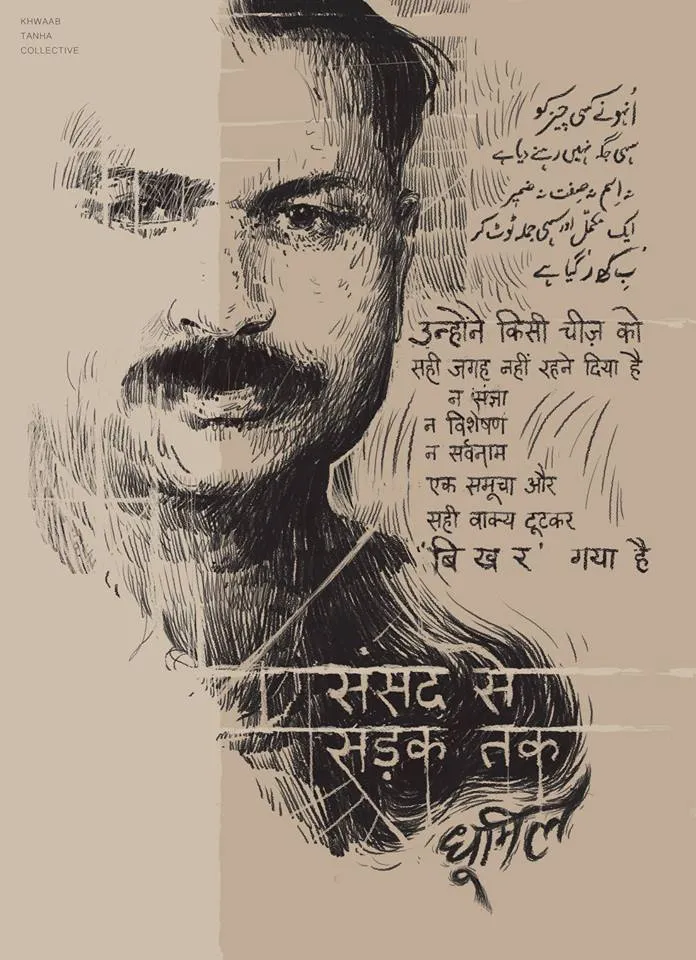 KHWAAB
TANHA
COLLECTIVE
اُنہونے کسی چیز کو
سہی جگہ نہیں رہنے دیا ہے
نہ اسم نہ صفت نہ ضمیر
ایک مکمّل اور سہی جملہ ٹوٹ کر
گیا ہے
उन्होंने किसी चीज़ को
सही जगह नहीं रहने दिया है
न संज्ञा
न विशेषण
न सर्वनाम
एक समूचा और
सही वाक्य टूटकर
'बि ख र' गया है
संसद से
सड़क तक
धूमिल